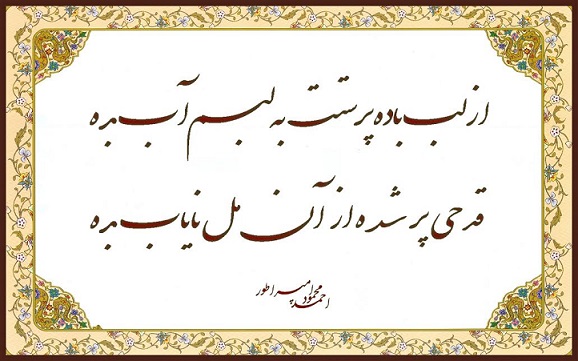 از لب باده پرستت به لبم آب بده
قدحی پر شده از آن مل نایاب بده
احمد محمود امپراطور